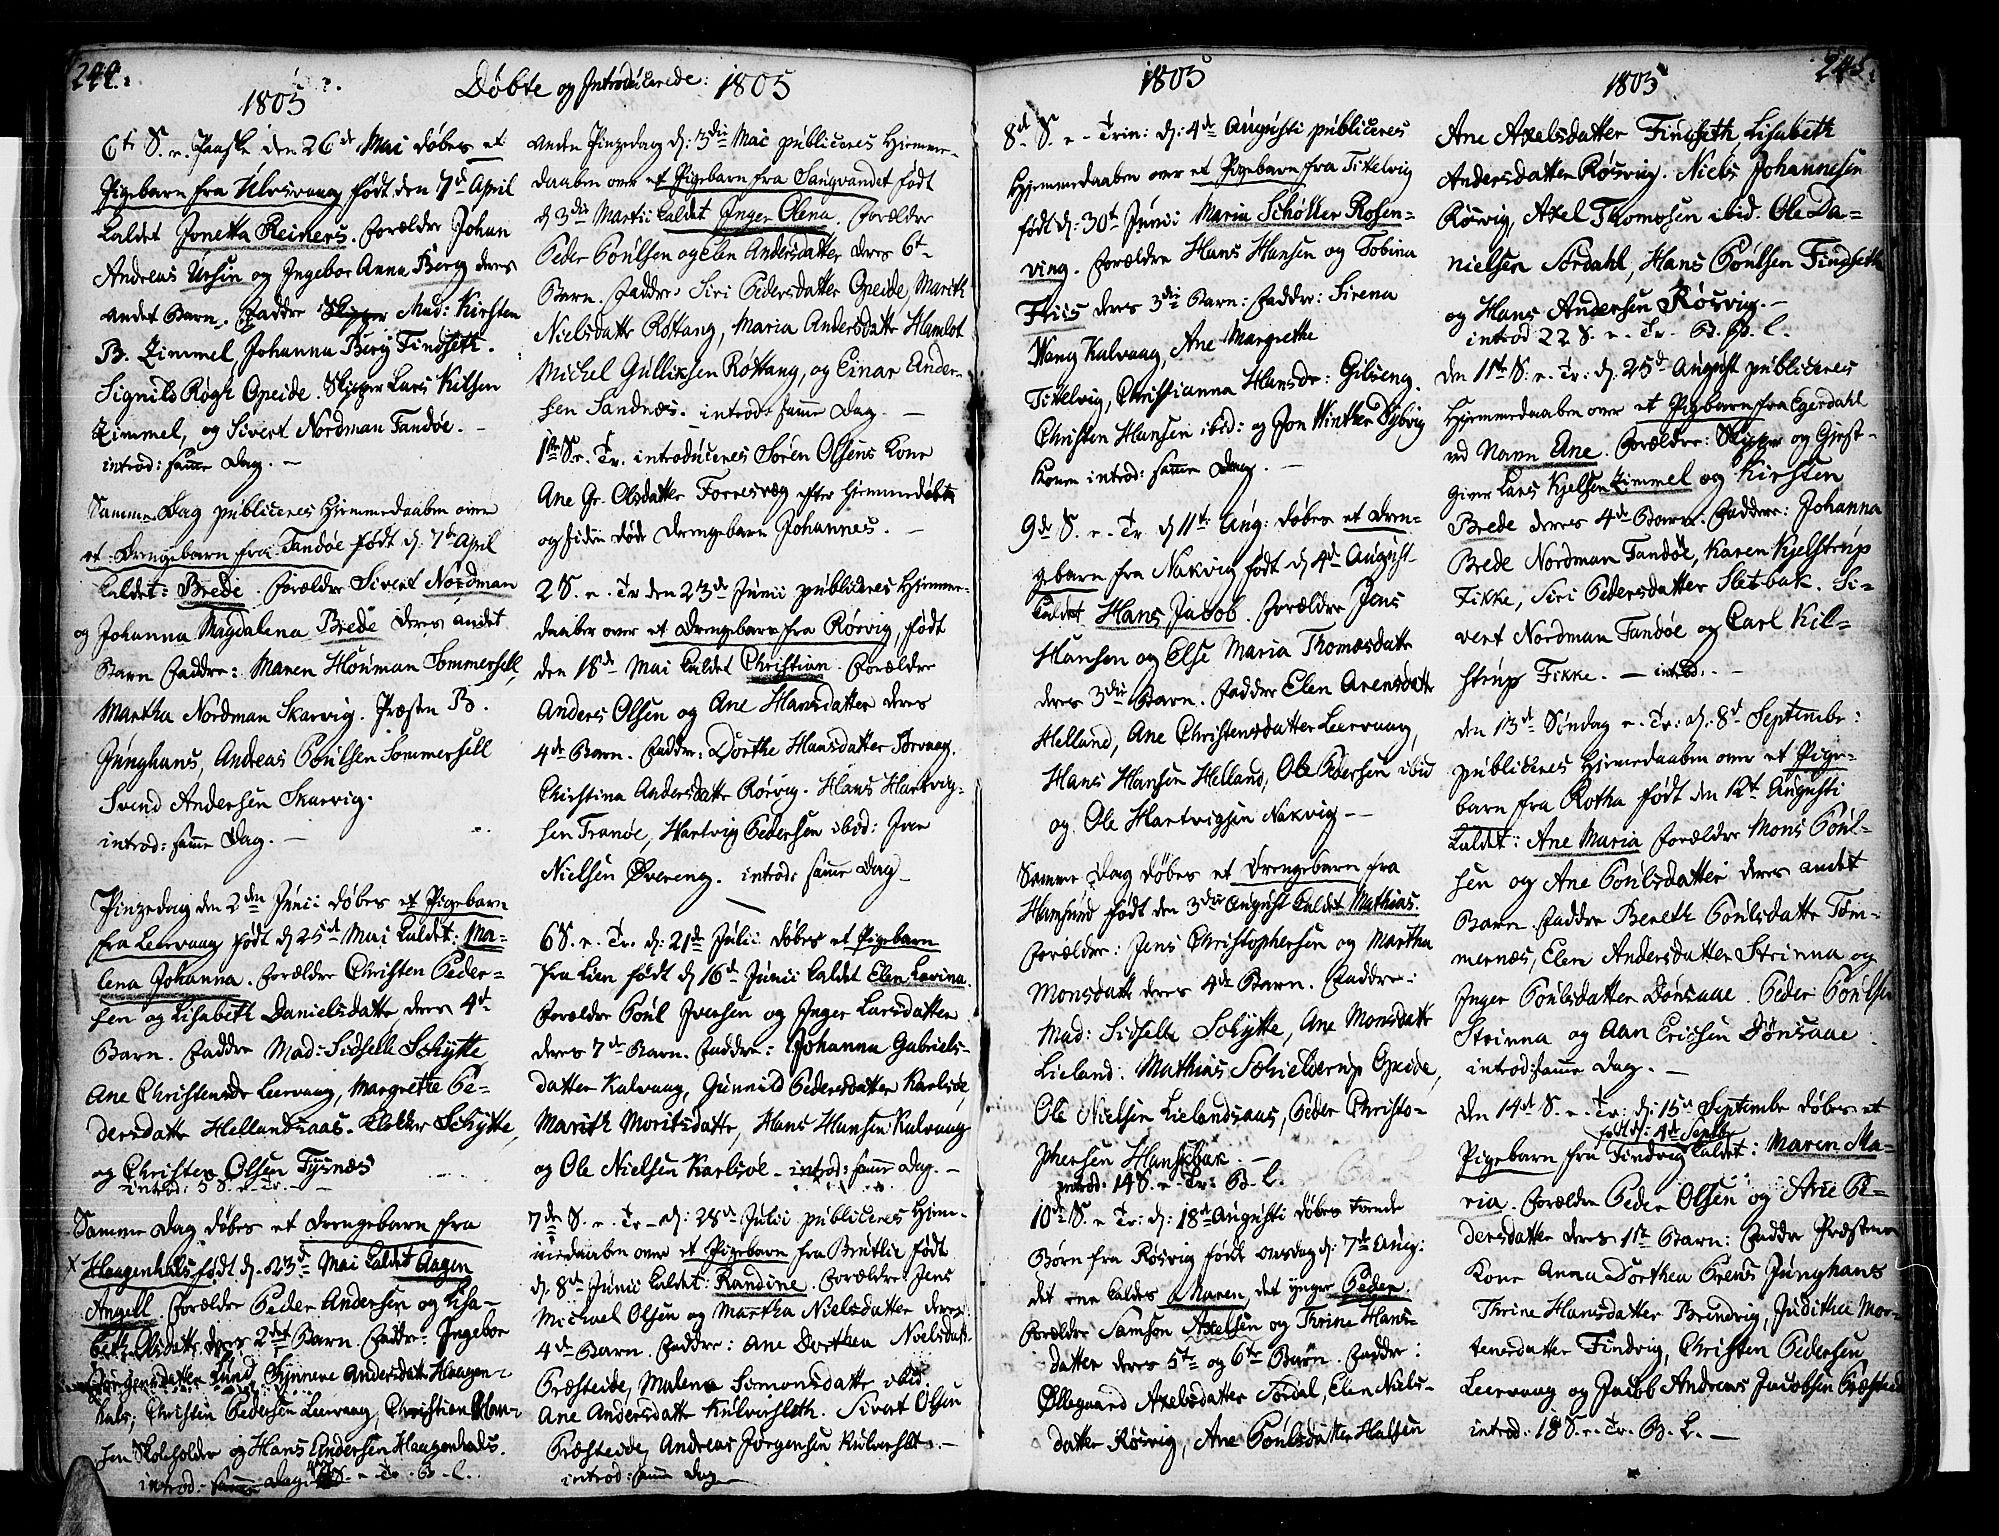 244.
Döbte og Introducerede: 1805
1805
6te S. e. Paaske den 26de Mai döbes et
Pigebarn fra Ulvsvaag födt den 7d April
kaldet Jonetta Reiners. Forældre Johan
Andreas Ursin og Ingebor Anna Berg deres
andet Barn. Faddre Skipper Mad: Kirsten
B. Zimmel, Johanna Berg Findseth.
Signild Røgh Opeide. Skipper Lars Kilsen
Zimmel, og Sivert Nordman Tandöe.
introd: samme Dag. —
Samme Dag publiceres Hjemmedaaben over
et Drengebarn fra Tandöe födt d: 7de April
kaldet: Brede. Forældre Sivert Nordman
og Johanna Magdalena Brede deres andet
Barn Faddre: Maren Houman Sommersell,
Martha Nordman Skarvig. Præsten B.
Junghans, Andreas Poulsen Sommersell
Svend Andersen Skarvig.
introd: samme Dag. —
Pinzedag den 2den Junii döbes et Pigebarn
fra Leervaag födt d 25d Mai kaldet: Ma-
lena Johanna. Forældre Christen Peder-
sen og Lisabeth Danielsdatter deres 4de
Barn. Faddre Mad: Sidselle Schytte
Ane Christensdr Leervaag, Margrette Pe-
dersdatter Hellandsaas. Klokker Schytte,
og Christen Olsen Tysnæs
introd: 5 S. e. Tr. —
Samme Dag döbes et Drengebarn fra
x Haagenhals födt d. 23d Mai kaldet Aagen
Angell Forældre Peder Andersen og Lisa-
beth Olsdatter deres 2det Barn Faddr: Ingebor
Jörgensdatter Lund, Synneve Andersdatter Haagen-
hals, Christen Pedersen Leervaag, Christian
sen Skoleholder og Hans Andersen Haagenhals.
introd: samme Dag S. e. Tr. B. L.
Anden Pinzedag d: 3die Mai publiceres Hjemme-
daaben over et Pigebarn fra Sangvandet födt
d 3die Martii kaldet Inger Olena. Forældre
Peder Poulsen og Elen Andersdatter deres 6te
Barn. Faddre: Siri Pedersdatter Opeide, Marith
Nielsdatter Röttang, Maria Andersdatter Hamlot
Michel Gulliksen Röttang, og Einar Ander-
sen Sandnæs. introd: samme Dag. —
1ste S. e. Tr. introduceres Sören Olsens Kone
Ane Gr. Olsdatter Forresvæg efter hjemmedöbte
og siden döde Drengebarn Johannes. —
2 S. e. Tr den 23de Junii publiceres Hjemme-
daaben over et Drengebarn fra Rörvig, födt
den 18de Mai kaldet Christian. Forældre
Anders Olsen og Ane Hansdatter deres
4de Barn. Faddre: Dorthe Hansdatter Korvaag.
Christina Andersdatter Rörvig. Hans Hartvig-
sen Tranöe, Hartvig Pedersen ibid: Iver
Nielsen Övereng. introd: samme Dag —
6 S. e. Tr. d: 21de Julii döbes et Pigebarn
fra Lien födt d 16de Junii kaldet Elen Lovina.
Forældre Poul Iversen og Inger Larsdatter
deres 7de Barn. Faddre: Johanna Gabriels-
datter Kalvaag, Gunnild Pedersdatter Karlsöe,
Marith Moritsdatter, Hans Hansen Kalvaag
og Ole Nielsen Karlsöe — introd: samme Dag. —
7de S. e. Tr — d: 28de Julii publiceres Hjem-
medaaben over et Pigebarn fra Brutlie födt
d. 8de Junii kaldet: Randine. Forældre Jens
Michael Olsen og Martha Nielsdatter deres
4de Barn. Faddre: Ane Dorthea Nielsdatr
Præsteide, Malena Simonsdatter ibid.
Ane Andersdatter Kulversloth. Sivert Olsen
Præsteide, Andreas Jörgensen Kulverslot. —
introd: samme Dag
1805
8de S. e. Trin: d: 4de Augusti publiceres
Hjemmedaaben over et Pigebarn fra Tittelvig
födt d: 30te Junii Maria Schölter Rosen-
ving. Forældre Hans Hansen og Tobina
Friis deres 3die Barn: Faddre: Sirena
Wang Kalvaag, Ane Margrethe
Tittelvig, Christianna Hansdr: Gilseng.
Christen Hansen ibid: og Jon Winther Dybvig
Konen introd: samme Dag. —
9de S. e. Tr. d 11te Aug: döbes et Dren-
gebarn fra Nakvig födt d 4de August
kaldet Hans Jacob. Forældre Jens
Hansen og Else Maria Thomasdatter
deres 3die Barn. Faddre Elen Arensdatter
Helland, Ane Christensdatter Leervaag,
Hans Hansen Helland, Ole Pedersen ibid
og Ole Hartvigsen Nakvig —
Samme Dag döbes et Drengebarn fra
Hamsund födt den 3die August kaldet Mathias.
Forældre: Jens Christophersen og Martha
Monsdatter deres 4de Barn. Faddre:
Mad: Sidselle Schytte, Ane Monsdatter
Lieland. Mathias Schielderup Opeide,
Ole Nielsen Lielandsaas, Peder Christo-
phersen Hansbak. —
introd: 14 S. e. Tr: B. L.
10de S. e Tr: d: 18de Augusti döbes tvende
Börn fra Rösvig födt onsdag d: 7de Aug:
det ene kaldes Maren, det yngre Peder
Forældre Samson Axelsen og Thrine Hans-
datter deres 5te og 6te Barn. Faddre:
Ollegaard Axelsdatter Tordal, Elen Niels-
datter Rösvig, Ane Poulsdatter Halsen
245.
1805
Ane Axelsdatter Findseth, Lisabeth
Andersdatter Rösvig. Niels Johannesen
Rösvig, Axel Thomassen ibid. Ole Da-
nielsen Tordahl, Hans Poulsen Findseth
og Hans Andersen Rösvig. —
introd 22 S. e. Tr. B. L.
den 11te S. e. Tr: d: 25de August publiceres
Hjemmedaaben over et Pigebarn fra Egerdahl
ved Navn Ane. Forældre: Skipper og Gjest-
giver Lars Kjelsen Zimmel og Kirsten
Brede deres 4de Barn. Faddere: Johanna
Brede Nordman Tandöe, Karen Kjelstrup
Fikke, Siri Pedersdatter Sletbak. Si-
vert Nordman Tandöe og Carl Kil-
strup Fikke. — introd. —
den 13de Söndag e. Tr: d: 8de Septembr:
publiceres Hjemmedaaben over et Pige-
barn fra Rotha födt den 12te Augusti
kaldet: Ane Maria Forældre Mons Poul-
sen og Ane Poulsdatter deres andet
Barn. Faddre Bereth Poulsdatter Tom-
mernæs, Elen Andersdatter Strinna og
Inger Poulsdatter Dönsaae. Peder Poulsen
Strinna og Aan Ericsen Dönsaae.
introd: samme Dag. —
den 14de S. e. Tr: d: 15de Septembr döbes et
födt d: 4de Septbr
Pigebarn fra Findvig kaldet: Maren Ma-
ria. Forældre Peder Olsen og Ane Pe-
dersdatter deres 1ste Barn: Faddre Præstens
Kone Anna Dorthea Prens Junghans
Thrine Hansdatter Brendvig, Juditha Mor-
tensdatter Findvig, Christen Pedersen
Leervaag og Jacob Andreas Jacobsen Præsteide
introd: 18 S. e. Tr. B. L. —